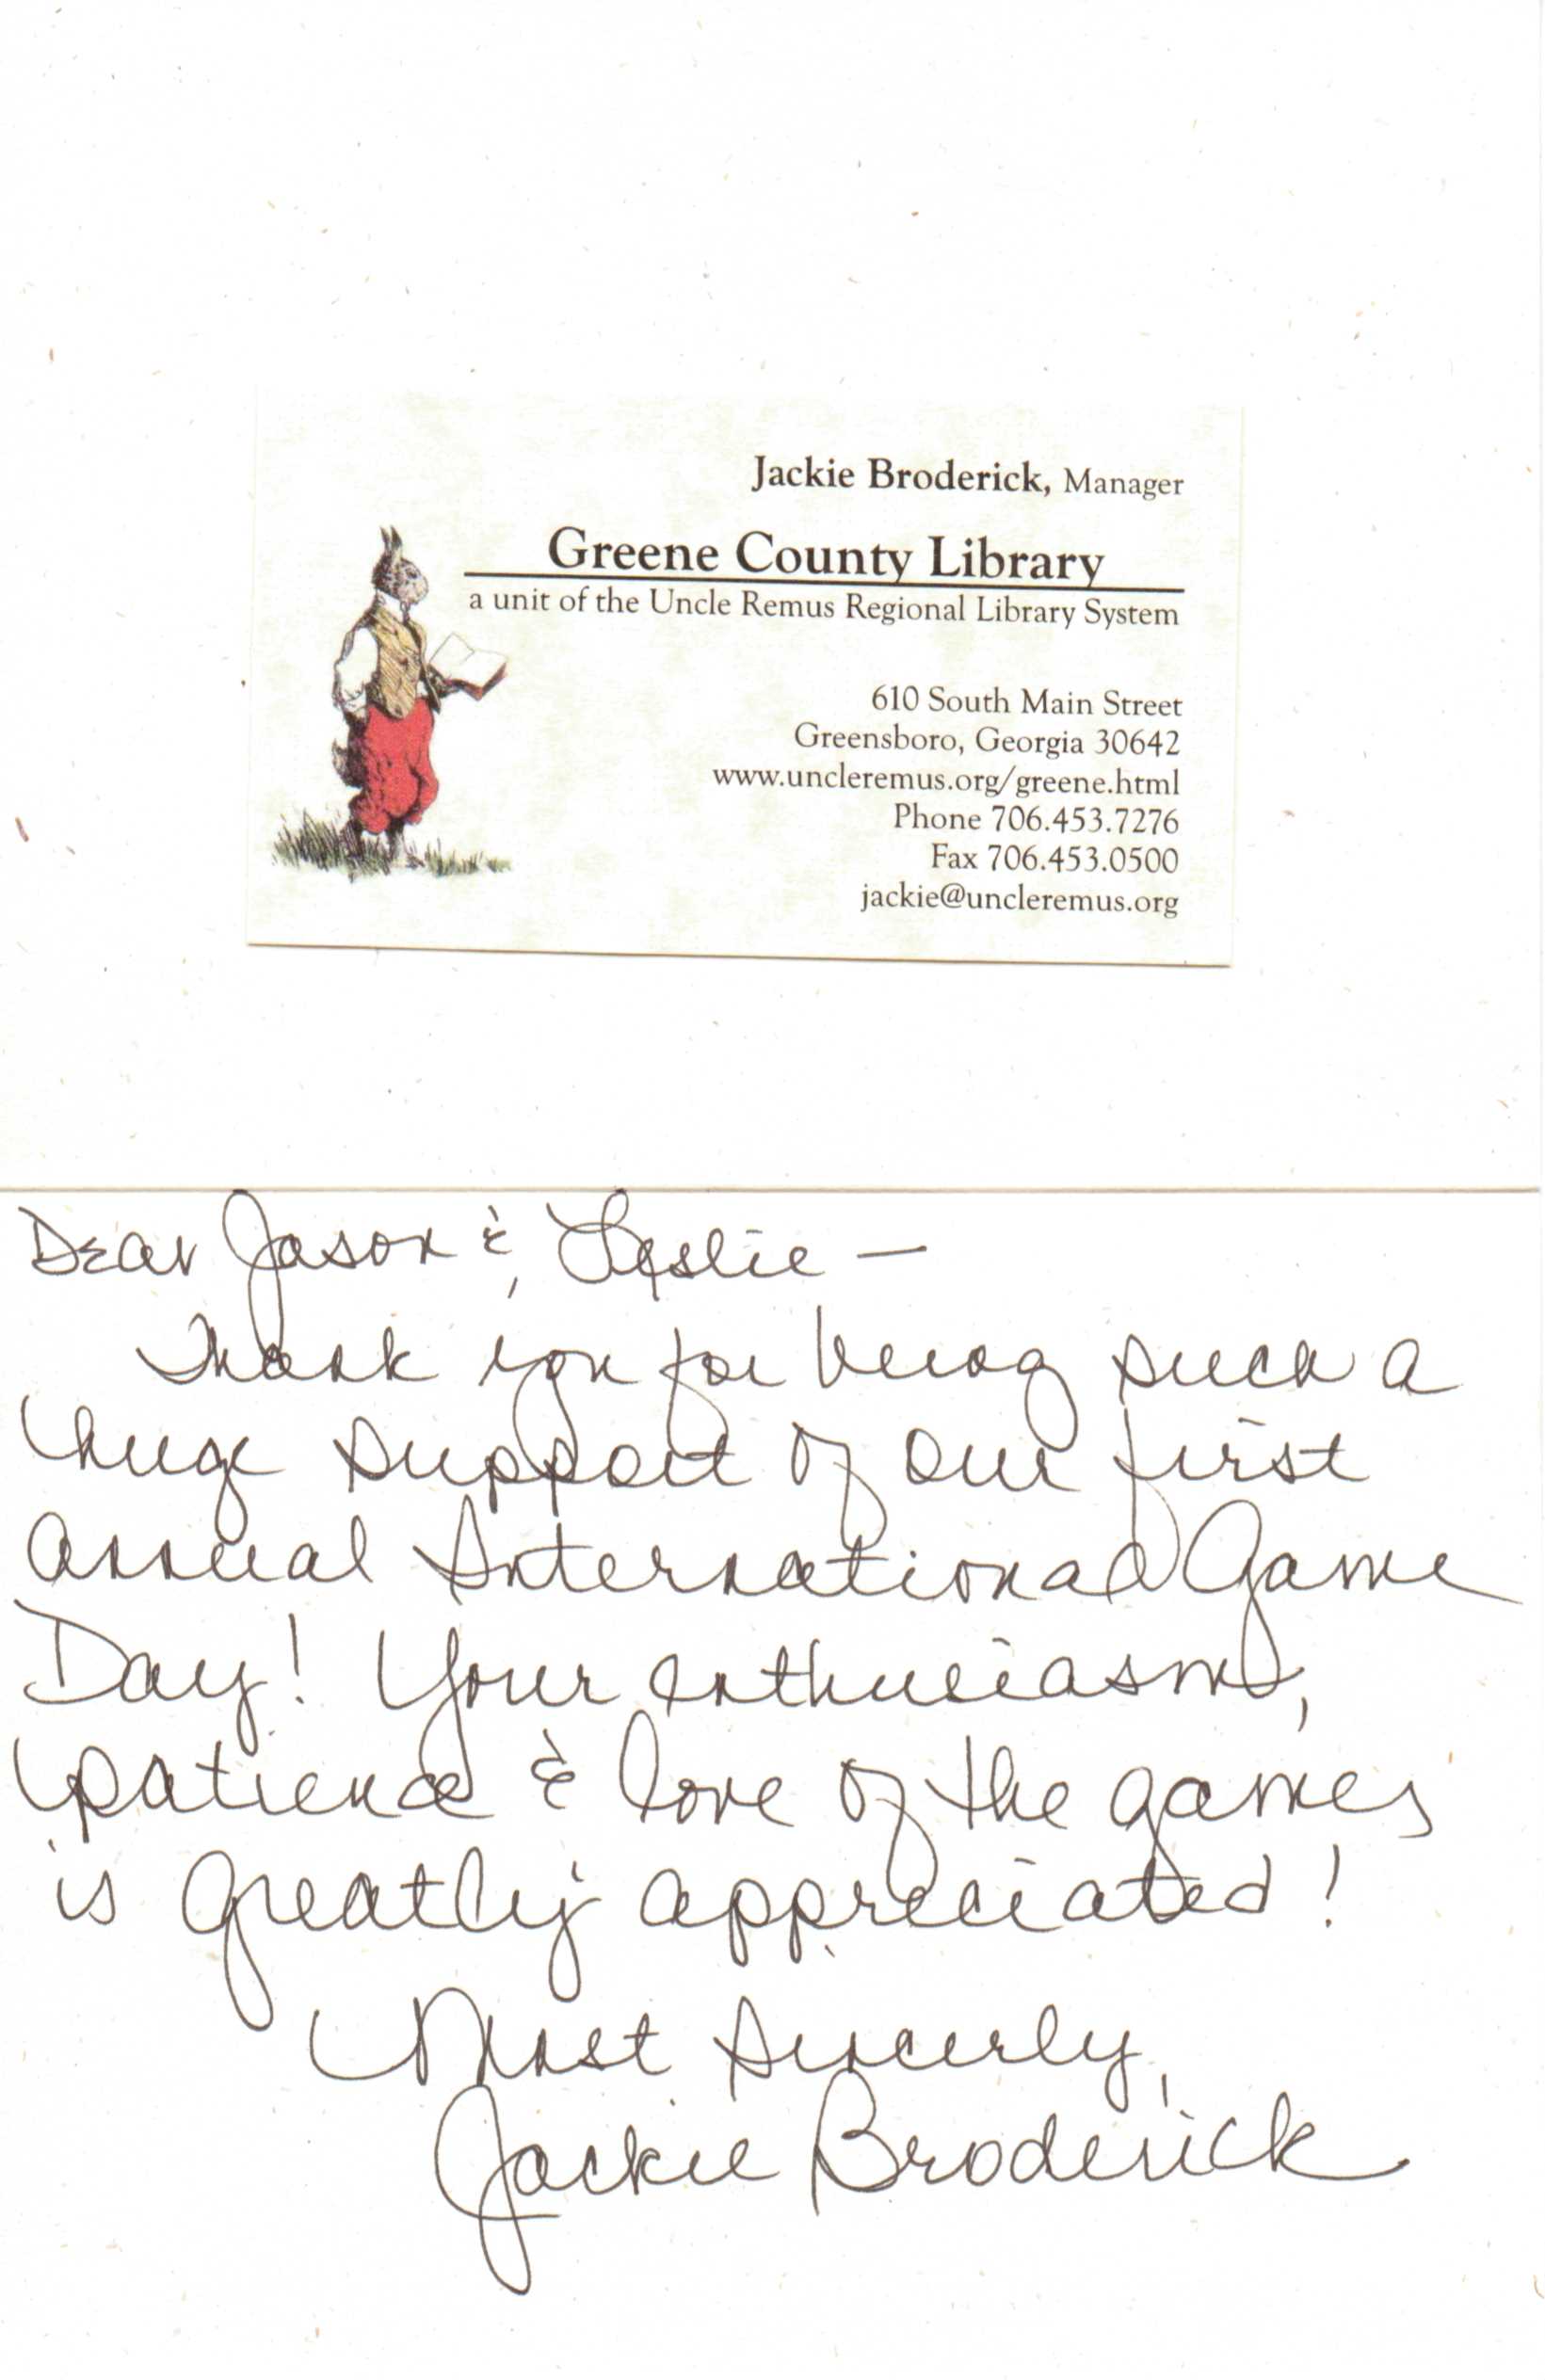 Jackie Broderick, Manager
Greene County Library
a unit of the Uncle Remus Regional Library System
610 South Main Street
Greensboro, Georgia 30642
www.uncleremus.org/greene.html
Phone 706.453.7276
Fax 706.453.0500
jackie@uncleremus.org
Dear Jason & Leslie –
Thank you for being such a
huge support of our first
annual International Game
Day! Your enthusiasm,
patience & love of the games
is greatly appreciated!
Most Sincerly,
Jackie Broderick